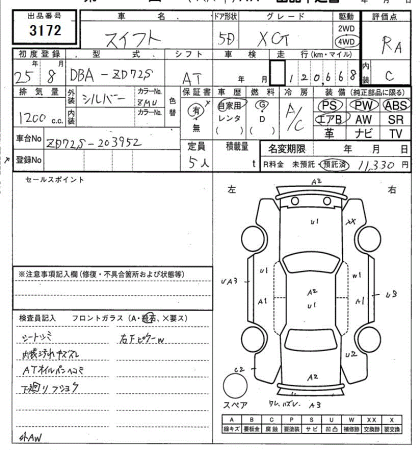 出品番号
3172
車名
スイフト
ドア形状
5D
グレード
XGT
駆動
2WD
4WD
評価点
RA
初度登録
25年8月
型式
DBA-ZD72S
シフト
AT
車検
年 月
走行(km・マイル)
120668
内装
C
排気量
1200 c.c.
外装
シルバー
カラーNo.
ZMU
内装
カラーNo.
色替
保証書
有
無
車歴
自家用
レンタ
( )
燃料
G
D
( )
冷房
A/C
装備(純正部品に限る)
PS PW ABS
エアB AW SR
革 ナビ TV
車台No
ZD72S-203952
登録No
定員
5人
積載量
t
名変期限
年 月 日
R料金 未預託・預託済 11,330円
セールスポイント
※注意事項記入欄(修復・不具合箇所および状態等)
検査員記入 フロントガラス(A・飛石、×要ス)
シートシミ
右Fピラーw
内装汚れキズスレ
ATオイルパンヘコミ
下廻りフショク
社外AW
左
右
A2
U1
AX
U1
W1
UA3
A1
A2
U1
A1
U3
C2
A2
U2
スペア
A3
A B C P S U W XX X
線キズ 要板金 腐蝕 要塗装 サビ 凹凸 補修跡 交換跡 要交換